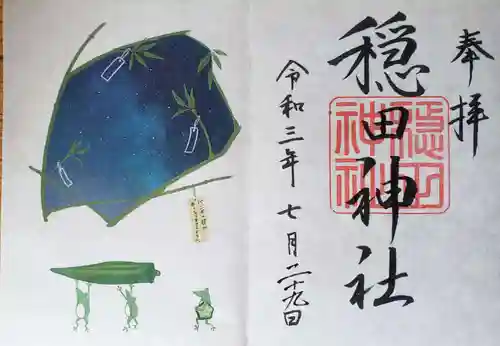 奉拝
穏田神社
穏田
神社
令和三年 七月二十九日